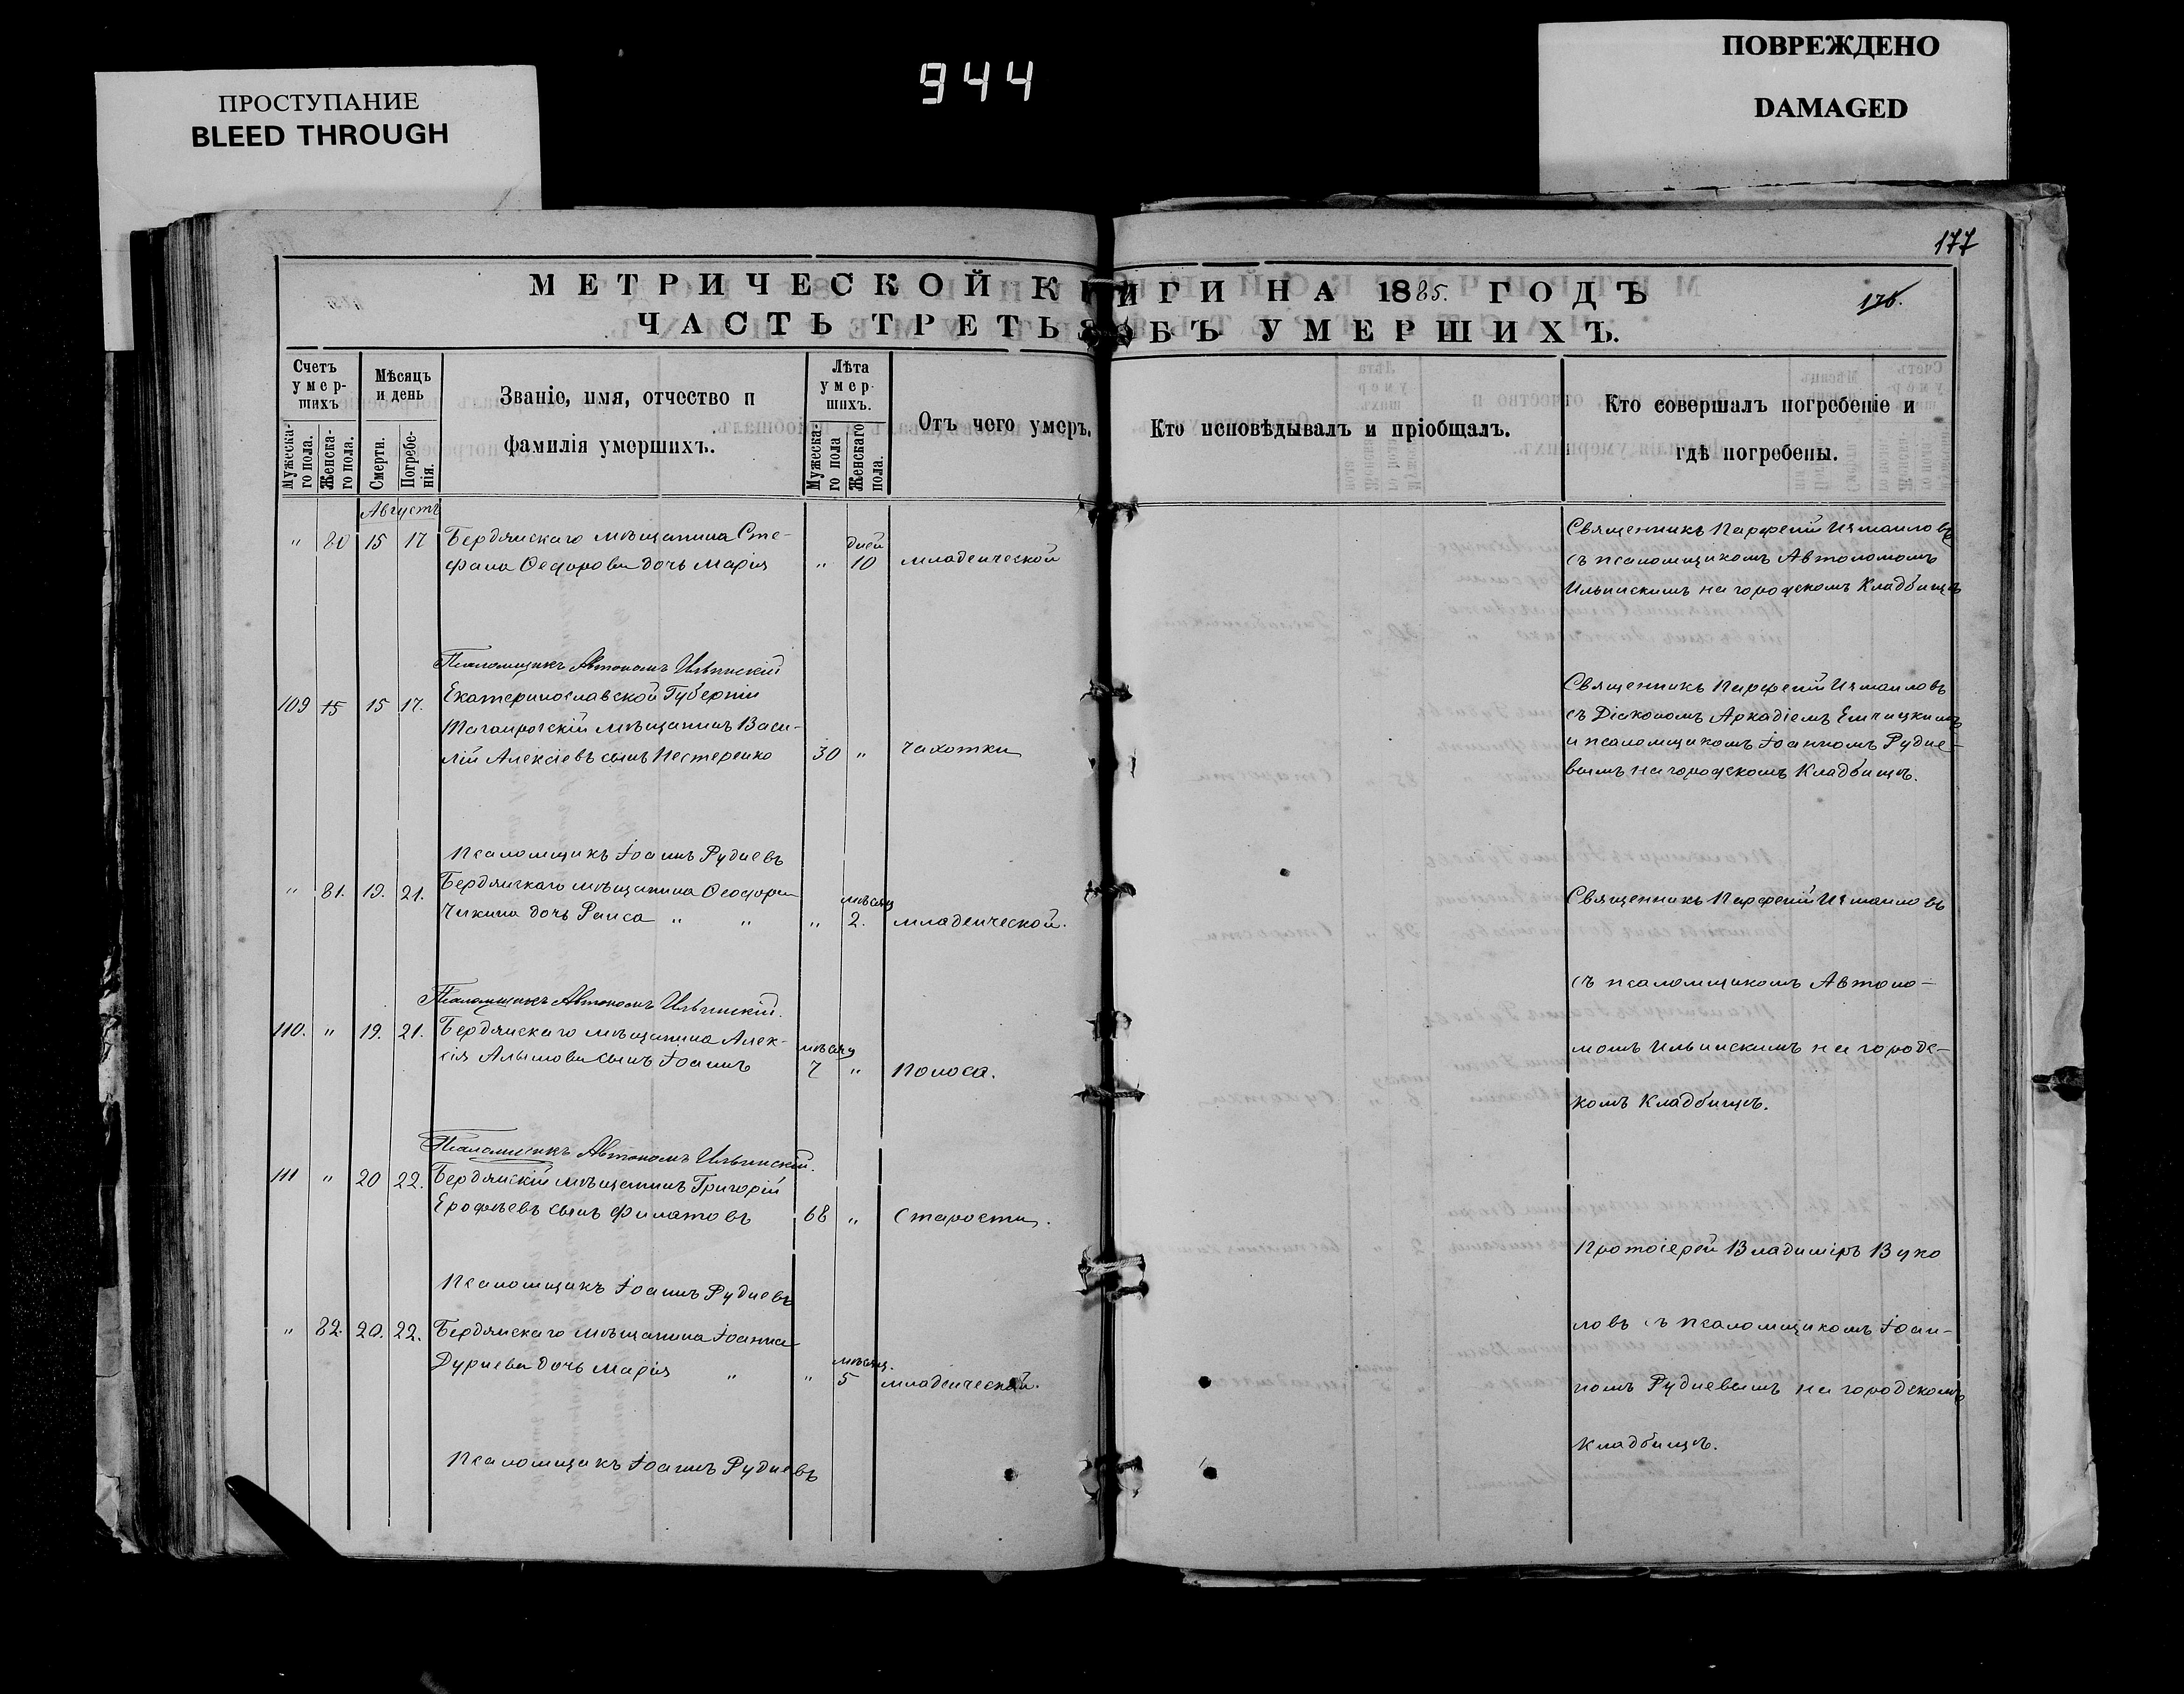 ПРОСТУПАНИЕ
BLEED THROUGH
944
ПОВРЕЖДЕНО
DAMAGED
177
176.
МЕТРИЧЕСКОЙ КНИГИ НА 1885. ГОДЪ
ЧАСТЬ ТРЕТЬЯ ОБЪ УМЕРШИХЪ.
Счетъ умер-шихъ
Мужеска-го пола.
Женска-го пола.
Мѣсяцъ и день
Смерти.
Погребе-нія.
Званіе, имя, отчество и
фамилія умершихъ.
Лѣта умер-шихъ.
Мужеска-го пола
Женскаго пола.
Отъ чего умеръ.
Кто исповѣдывалъ и пріобщалъ.
Кто совершалъ погребеніе и
гдѣ погребены.
Августъ
" 80 15 17 Бердянскаго мѣщанина Сте-
фана Ѳедорова дочь Марія " дней 10 младенческой
Священникъ Парфеній Измаиловъ
съ псаломщикомъ Автономомъ
Ильинскимъ на городскомъ Кладбищѣ
Псаломщикъ Автономъ Ильинскій
109 15 15 17. Екатеринославской Губерніи
Таганрогскій мѣщанинъ Васи-
лій Алексіевъ сынъ Нестеренко 30 " чахотки
Священникъ Парфеній Измаиловъ
съ Діакономъ Аркадіемъ
и псаломщикомъ Іоанномъ Рудне-
вымъ на городскомъ Кладбищѣ.
Псаломщикъ Іоаннъ Рудневъ
" 81. 19. 21. Бердянскаго мѣщанина Ѳеодора
Чикина дочь Раиса " " " мѣсяц 2. младенческой.
Священникъ Парфеній Измаиловъ
съ псаломщикомъ Автоно-
момъ Ильинскимъ на городс-
комъ Кладбищѣ.
Псаломщикъ Автономъ Ильинскій.
110. " 19. 21. Бердянскаго мѣщанина Алек-
сія Алымова сынъ Іоаннъ мѣсяц 7 " Поноса.
Псаломщикъ Автономъ Ильинскій.
111 " 20 22. Бердянскій мѣщанинъ Григорій
Ерофѣевъ сынъ Филатовъ 68 " Старости.
Протоіерей Владиміръ Вуко
ловъ съ псаломщикомъ Іоан-
номъ Рудневымъ на городскомъ
Кладбищѣ.
Псаломщикъ Іоаннъ Рудневъ
" 82. 20. 22. Бердянскаго мѣщанина Іоанна
Дурнева дочь Марія " " мѣсяц. 5 младенческой.
Псаломщикъ Іоаннъ Рудневъ